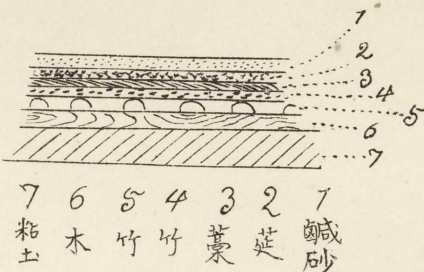 1
2
3
4
5
6
7
7 6 5 4 3 2 1
粘土 木 竹 竹 藁 莚 鹹砂